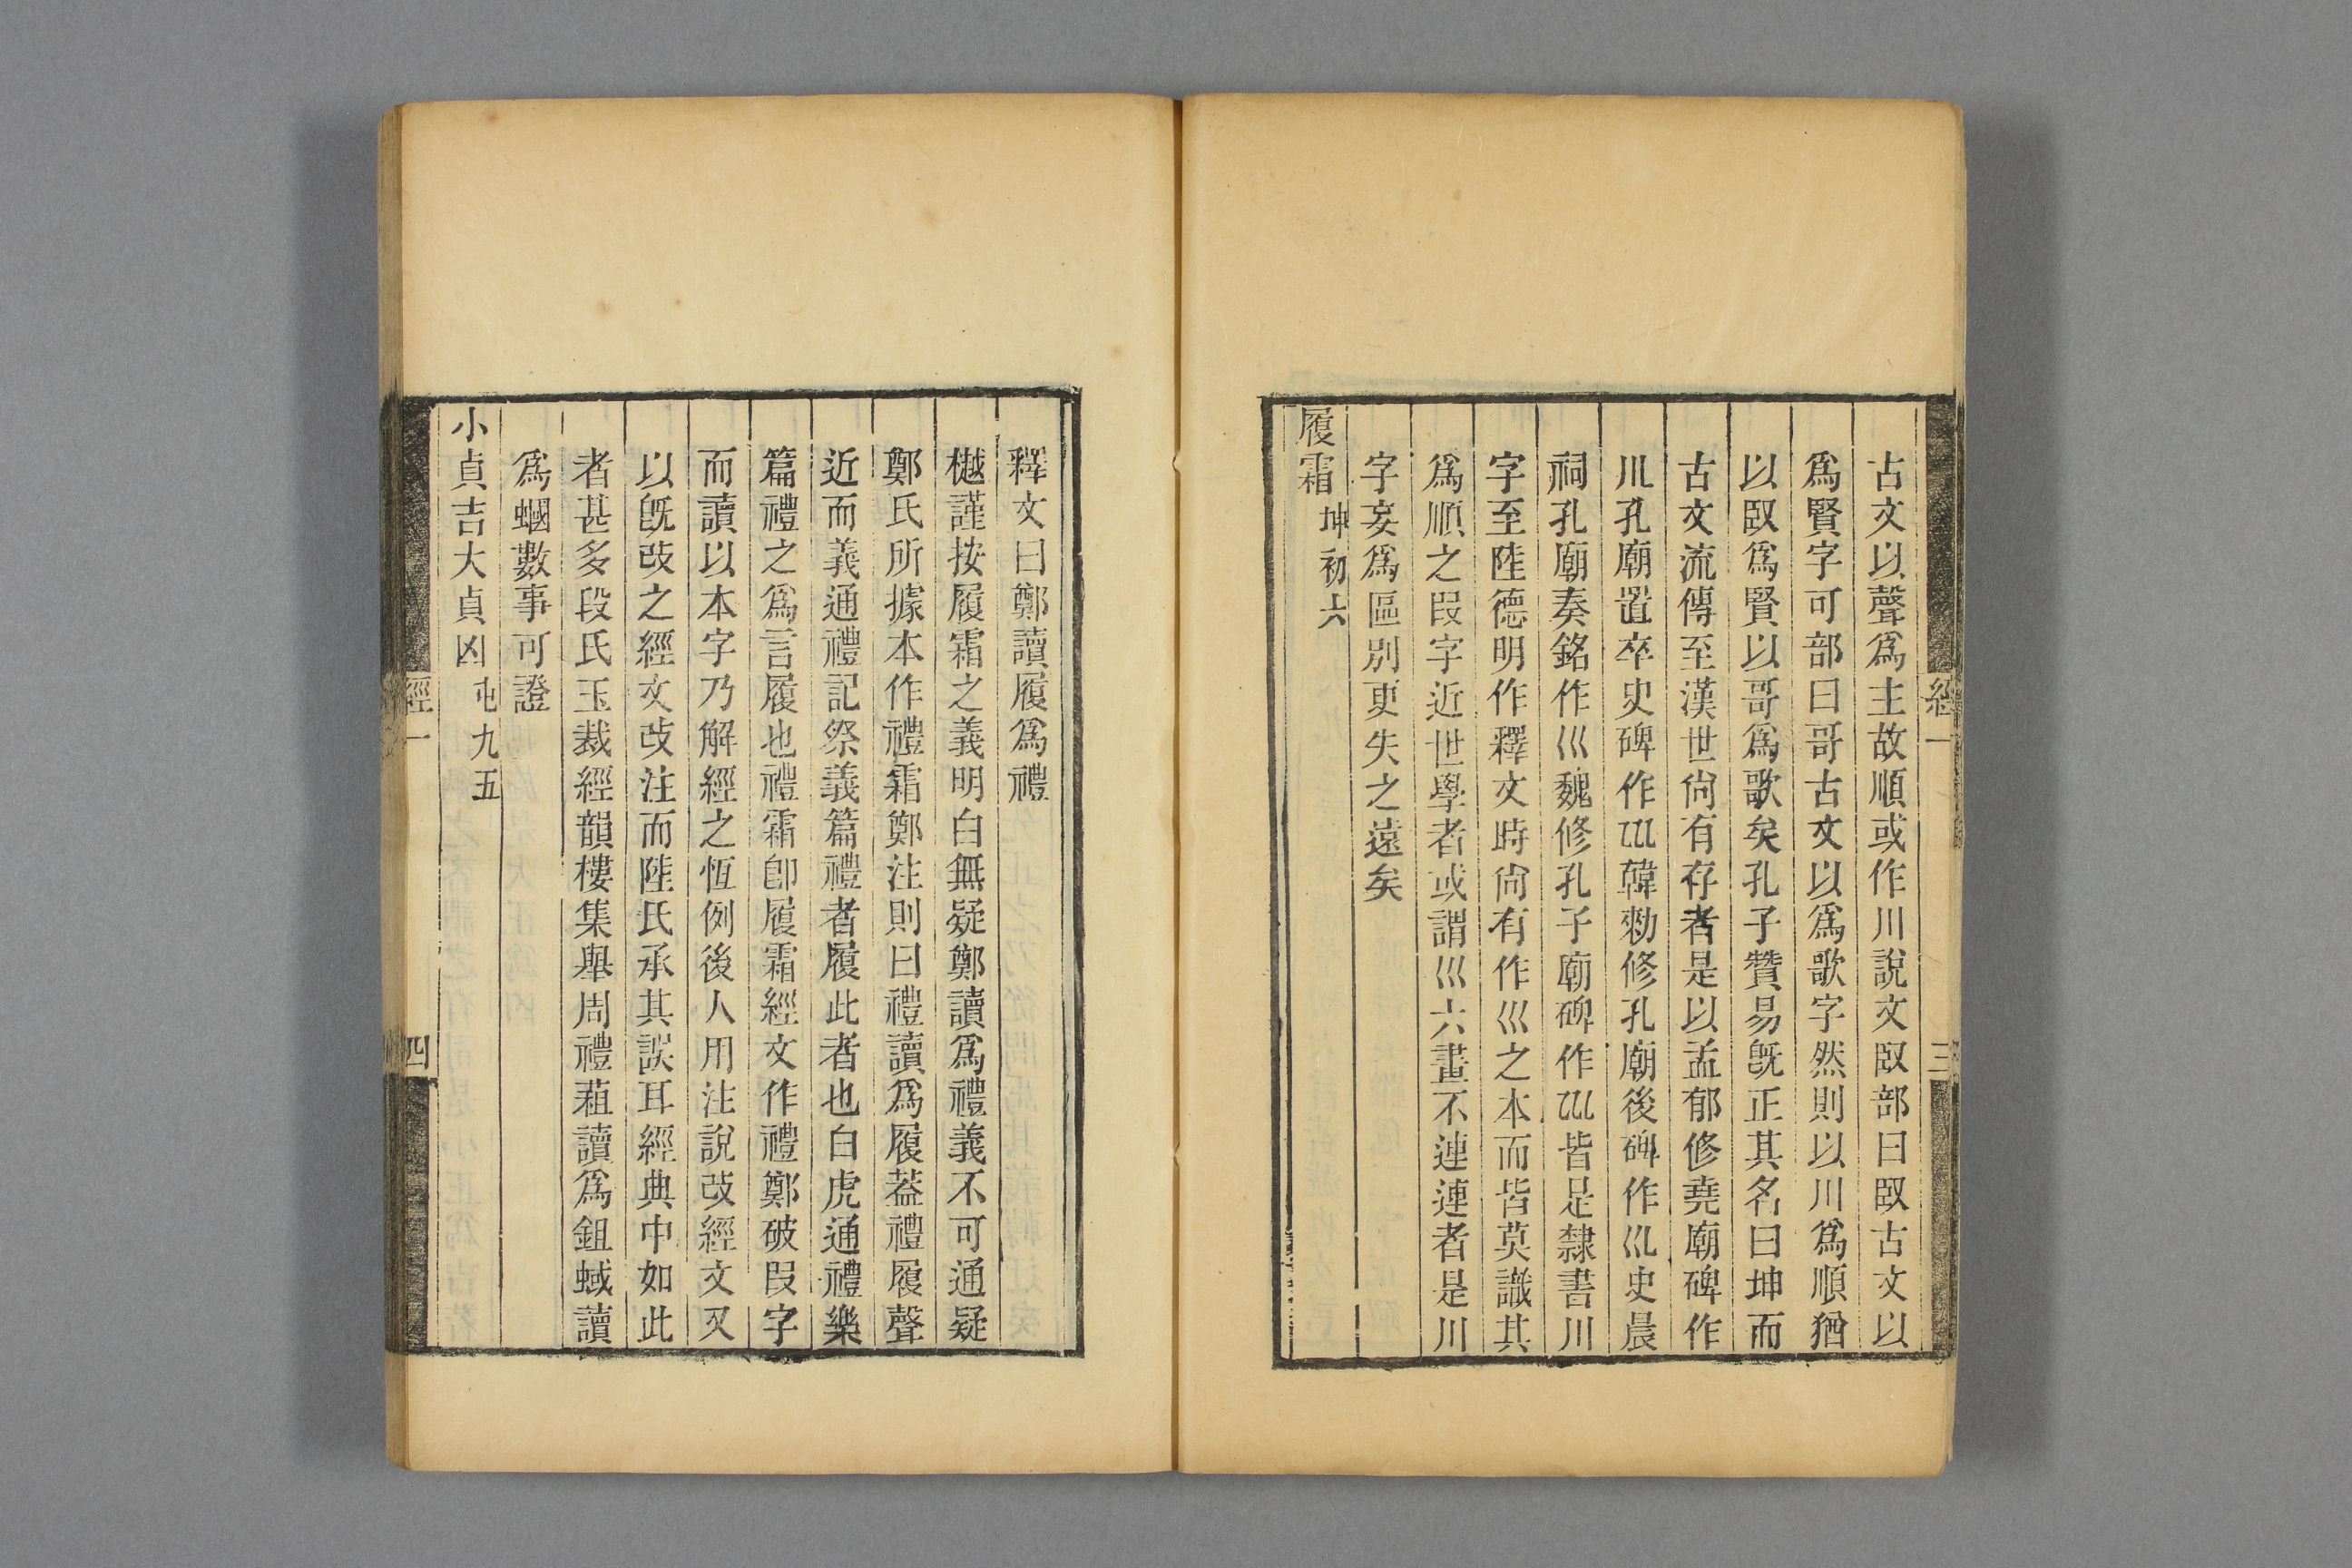 經一
三
古文以聲爲主故順或作川說文臤部曰臤古文以
爲賢字可部曰哥古文以爲歌字然則以川爲順猶
以臤爲賢以哥爲歌矣孔子贊易旣正其名曰坤而
古文流傳至漢世尙有存者是以孟郁修堯廟碑作
孔廟置卒史碑作韓勑修孔廟後碑作史晨
祠孔廟奏銘作巛魏修孔子廟碑作皆是隸書川
字至陸德明作釋文時尙有作巛之本而皆莫識其
爲順之叚字近世學者或謂巛六畫不連連者是川
字妄爲區別更失之遠矣
履霜坤初六
釋文曰鄭讀履爲禮
樾謹按履霜之義明白無疑鄭讀爲禮義不可通疑
鄭氏所據本作禮霜鄭注則曰禮讀爲履葢禮履聲
近而義通禮記祭義篇禮者履此者也白虎通禮樂
篇禮之爲言履也禮霜卽履霜經文作禮鄭破叚字
而讀以本字乃解經之恆例後人用注說改經文又
以旣改之經文改注而陸氏承其誤耳經典中如此
者甚多段氏玉裁經韻樓集舉周禮蒩讀爲鉏蜮讀
爲蟈數事可證
小貞吉大貞凶屯九五
經一
四